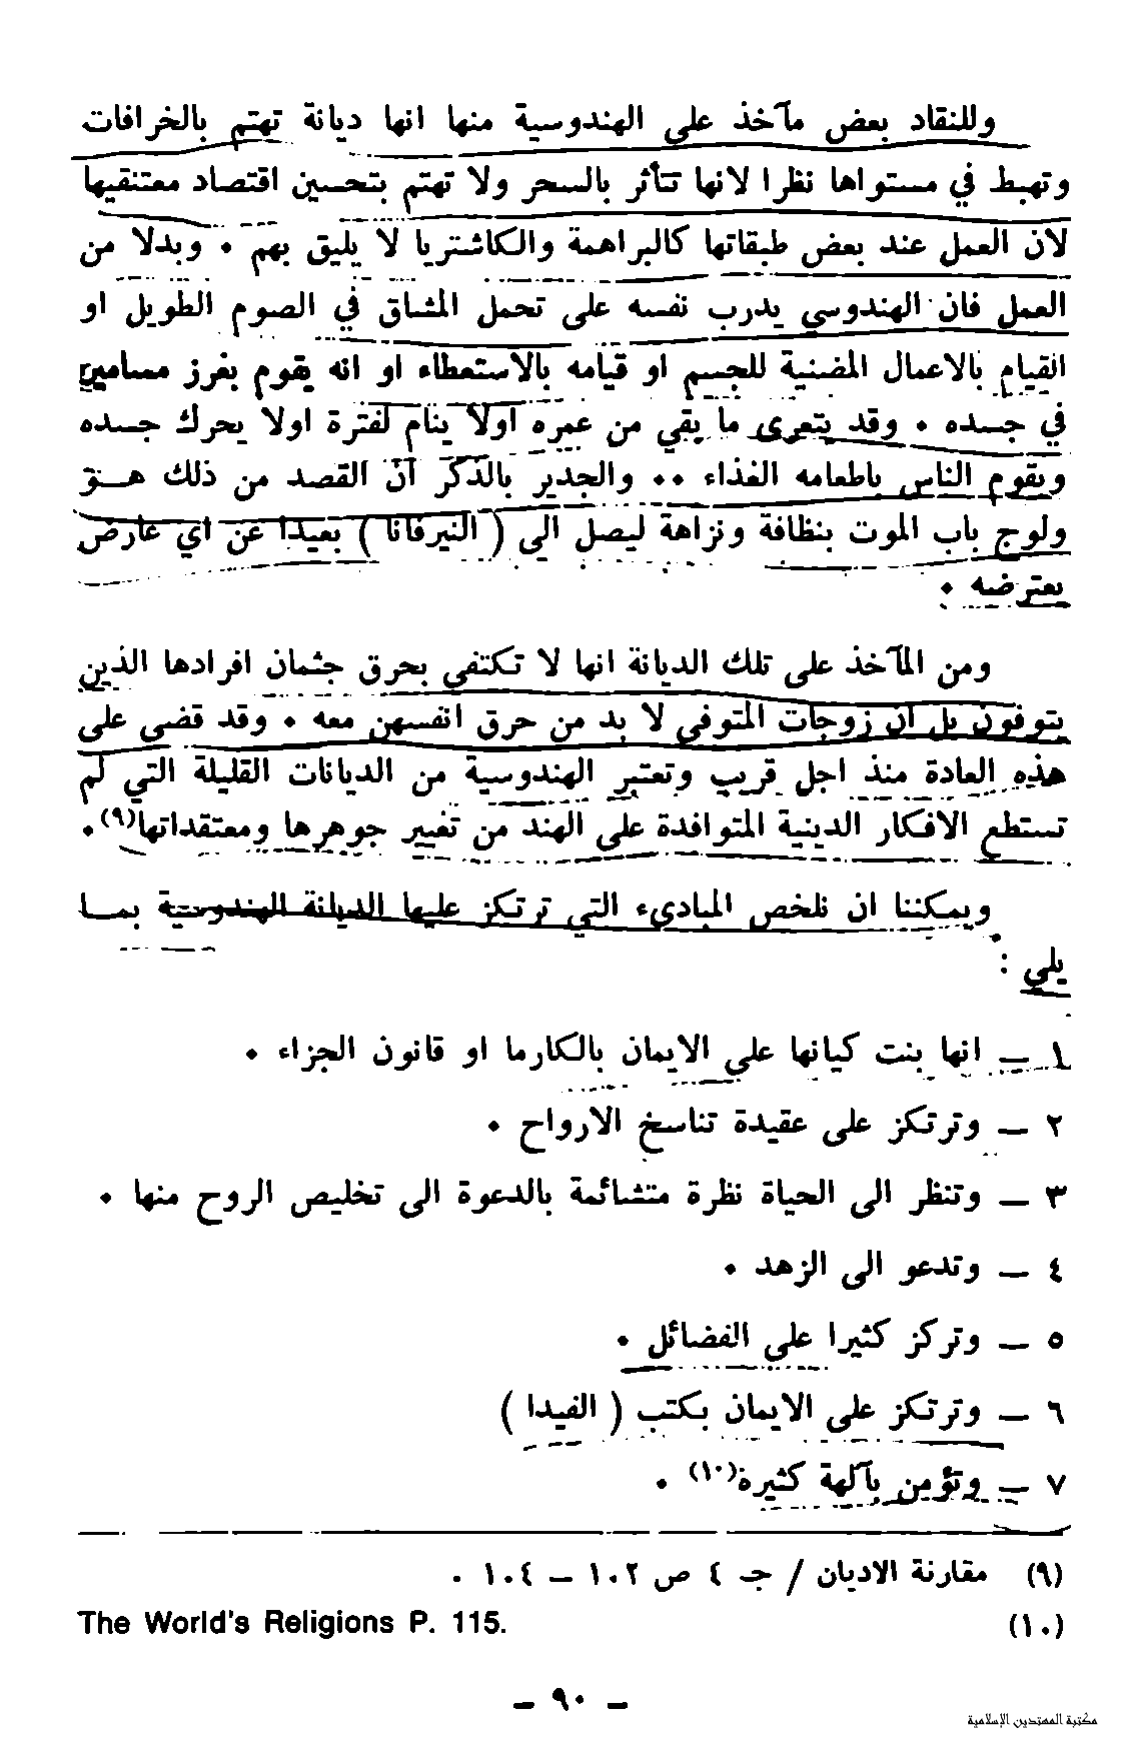 وللنقاد بعض مآخذ على الهندوسية منها انها ديانة تهتم بالخرافات
وتهبط في مستواها نظرا لانها تتأثر بالسحر ولا تهتم بتحسين اقتصاد معتنقيها
لان العمل عند بعض طبقاتها كالبراهمة والكاشتريا لا يليق بهم . وبدلا من
العمل فان الهندوسي يدرب نفسه على تحمل المشاق في الصوم الطويل او
القيام بالاعمال المضنية للجسم او قيامه بالاستعطاء او انه يقوم بغرز مسامير
في جسده . وقد يتعرى ما بقي من عمره اولا ينام لفترة اولا يحرك جسده
ويقوم الناس باطعامه الغذاء .. والجدير بالذكر ان القصد من ذلك هـو
ولوج باب الموت بنظافة ونزاهة ليصل الى ( النيرفانا ) بعيدا عن اي عارض
يعترضه .
ومن المآخذ على تلك الديانة انها لا تكتفي بحرق جثمان افرادها الذين
يتوفون بل ان زوجات المتوفي لا بد من حرق انفسهن معه . وقد قضى على
هذه العادة منذ اجل قريب وتعتبر الهندوسية من الديانات القليلة التي لم
تستطع الافكار الدينية المتوافدة على الهند من تغيير جوهرها ومعتقداتها(٩) .
ويمكننا ان نلخص المباديء التي ترتكز عليها الديانة الهندوسية بمـا
يلي :
١ — انها بنت كيانها على الايمان بالكارما او قانون الجزاء .
٢ — وترتكز على عقيدة تناسخ الارواح .
٣ — وتنظر الى الحياة نظرة متشائمة بالدعوة الى تخليص الروح منها .
٤ — وتدعو الى الزهد .
٥ — وتركز كثيرا على الفضائل .
٦ — وترتكز على الايمان بكتب ( الفيدا )
٧ — وتؤمن بآلهة كثيرة(١٠) .
(٩) مقارنة الاديان / جـ ٤ ص ١٠٢ — ١٠٤ .
(١٠) The World's Religions P. 115.
— ٩٠ —
مكتبة المهتدين الإسلامية